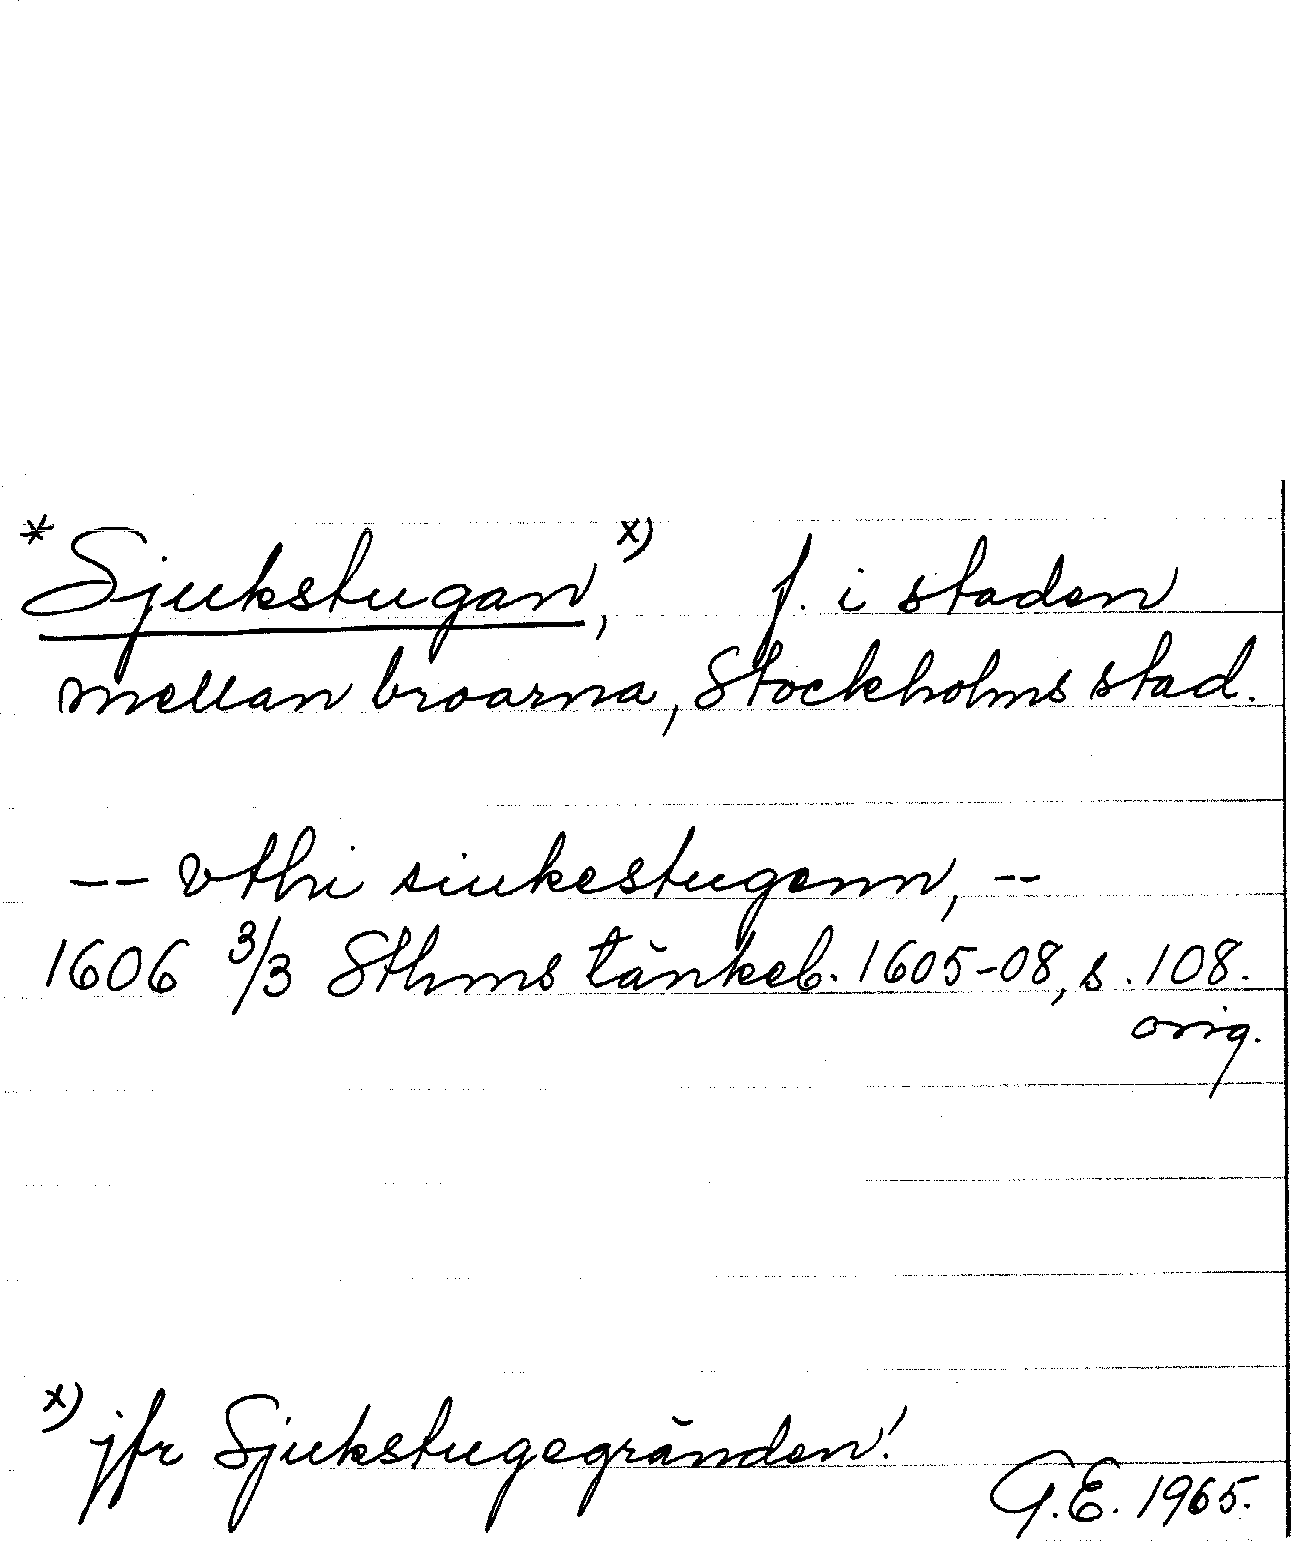 *Sjukstugan,x) f. i staden
mellan broarna, Stockholms stad.
-- vthi siukestugenn, --
1606 3/3 Sthms tänkeb. 1605-08, s. 108.
orig.
x) jfr Sjukstugegränden!
G.E. 1965.